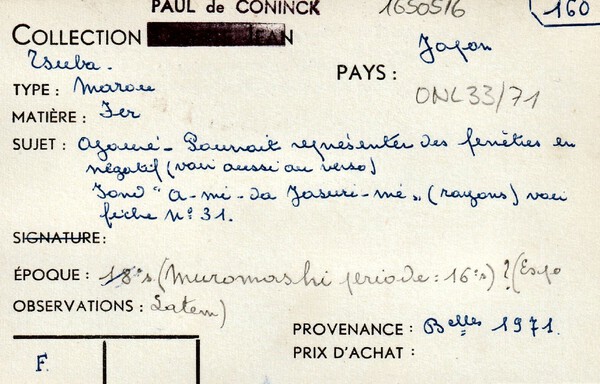 PAUL de CONINCK 1650516 160
COLLECTION JEAN Japon
Tsuba.
PAYS :
TYPE : Marou
ONL 33/71
MATIÈRE : Fer
SUJET : Ajouré - Pourrait représenter des fenêtres en
négatif (voir aussi au verso)
Fond "a-mi-da Jasuri-mé" (rayons) voir
fiche n° 31.
SIGNATURE :
ÉPOQUE : 18e s (Muromashi periode : 16e s) ? (Expo
OBSERVATIONS : Latem)
PROVENANCE : Belles 1971.
PRIX D'ACHAT :
F.